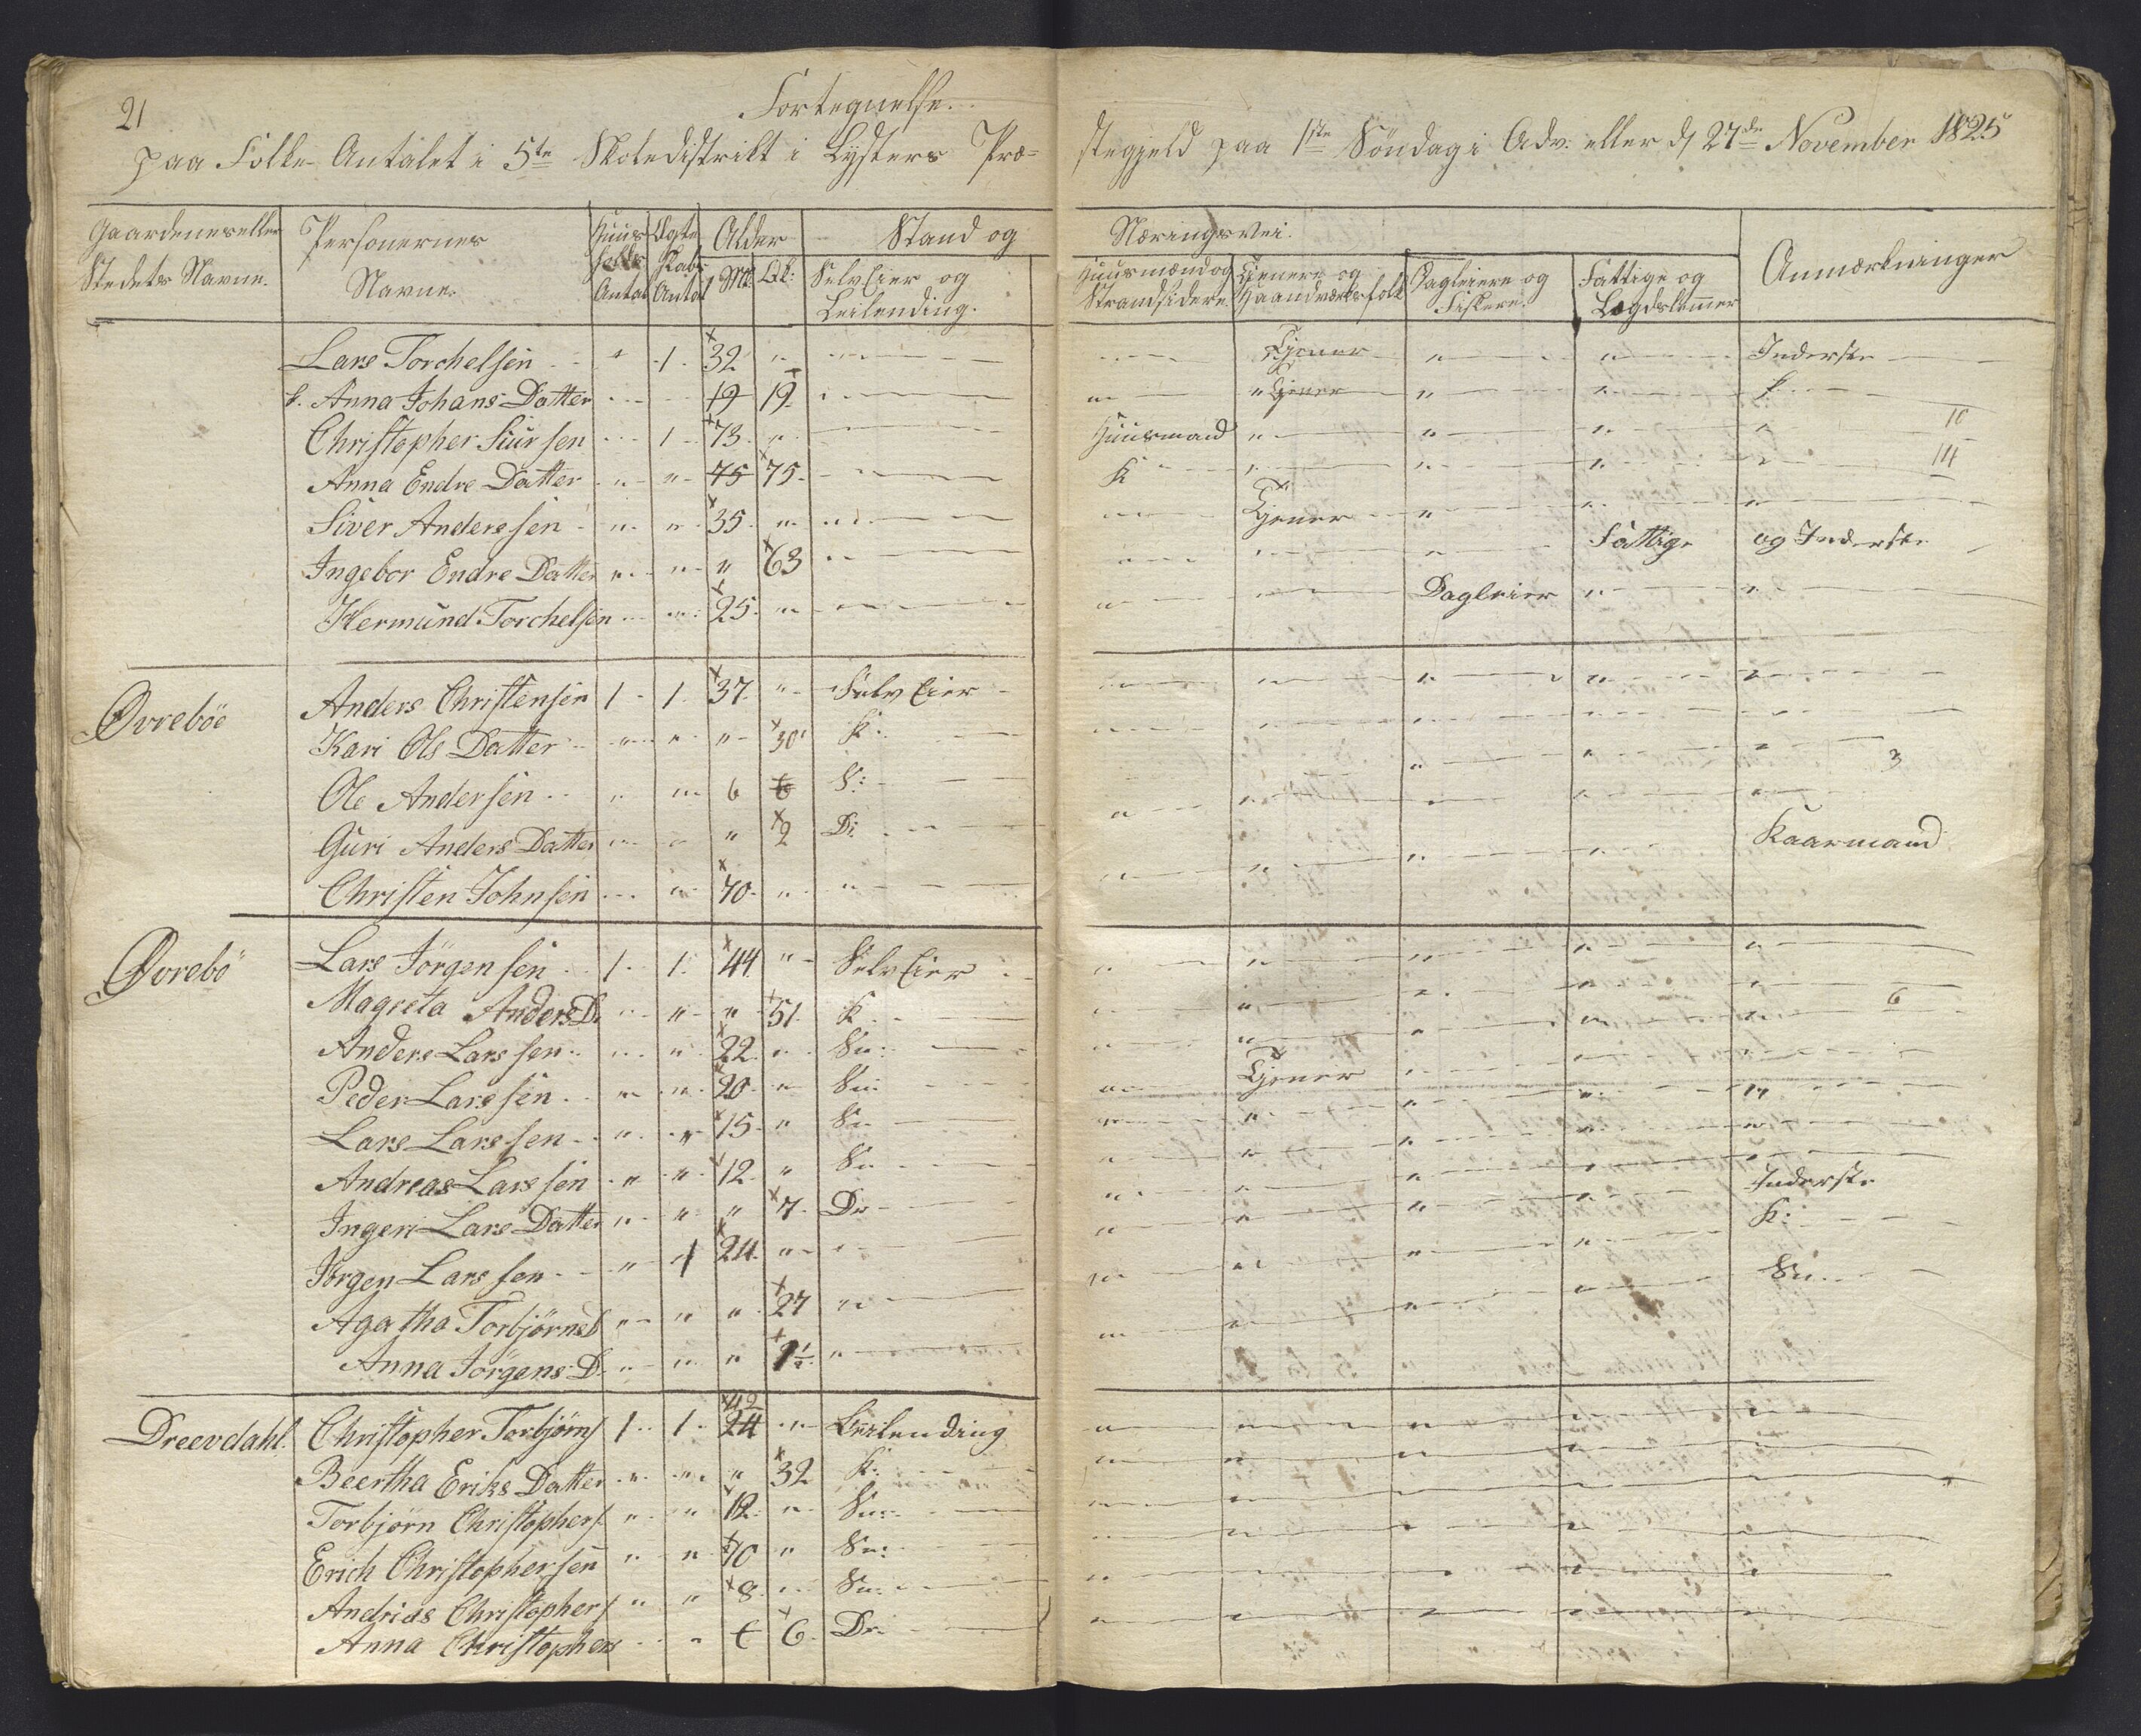 21
Fortegnelse
paa Folke-Antalet i 5te Skoledistrikt i Lysters Præ= stegjeld paa 1ste Söndag i Adv: eller d 27de November 1825
Gaardenes eller Stedets Navne. Personernes Navne. Huus holds Antal Ægte skabs Antal Alder Mk: Qk: Stand og Næringsvei. Anmærkninger
SelvEier og Leilending. Huusmænd og Strandsidere Tjenere og Haandværksfolk Dagleiere og Fiskere. Fattige og Lægdslemmer
Lars Torchelsen " 1 32 " Tjener " " Inderste
k. Anna Johans Datter 19 19 " Tjener " " k
Christopher Siursen 1 73 " Huusmand " " " " 10
Anna Endre Datter " " 75 75 K " " " " 14
Siver Anderssen " " 35 " Tjener " " "
Ingebor Endre Datter " " " 63 Fattige og Inderste
Hermund Torchelsen " 25 " Dagleier " "
Øvreböe Anders Christensen 1 1 37 " Selv Eier
Kari Ols Datter " " " 30 K:
Ole Andersen " " 6 6 S: 3
Guri Anders Datter " " " 2 D:
Christen Johnsen " 70 " " Kaarmand
Øvrebö Lars Jörgensen 1 1 44 " Selv Eier
Magreta Anders D. " " " 51 K 6
Anders Larssen " " 22 " Sn:
Peder Larssen " " 20 " Sn: Tjener
Lars Larssen " " 15 " Sn
Andreas Larssen " " 12 " Sn
Ingeri Lars Datter " " " 7 Dr
Jörgen Larssen " 1 24 " " Inderste
Agatha Torbjørnsd " " " 27 " K:
Anna Jörgens D. " " " 1½ " Sn
Dreevdahl. Christopher Torbjörns 1 1 42 24 " Leilending
Beertha Eriks Datter " " " 32 K:
Torbjörn Christophers. " " 12 " Sn:
Erich Christophersen " " 10 " Sn:
Andrias Christophers " " 8 " Sn:
Anna Christophers " 6 6 Dr